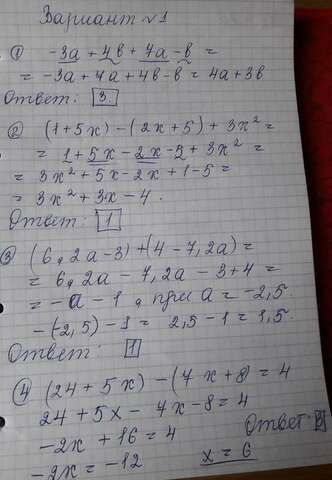 Вариант №1
① -3a + 4в + 7a - в =
= -3a + 7a + 4в - в = 4a + 3в
Ответ: 3.
② (1 + 5x) - (2x + 5) + 3x² =
= 1 + 5x - 2x - 5 + 3x² =
= 3x² + 5x - 2x + 1 - 5 =
= 3x² + 3x - 4.
Ответ: 1
③ (6,2a - 3) + (4 - 7,2a) =
= 6,2a - 7,2a - 3 + 4 =
= -a - 1, при a = -2,5.
-(-2,5) - 1 = 2,5 - 1 = 1,5.
Ответ: 1
④ (24 + 5x) - (7x + 8) = 4
24 + 5x - 7x - 8 = 4
-2x + 16 = 4
Ответ
-2x = -12 x = 6